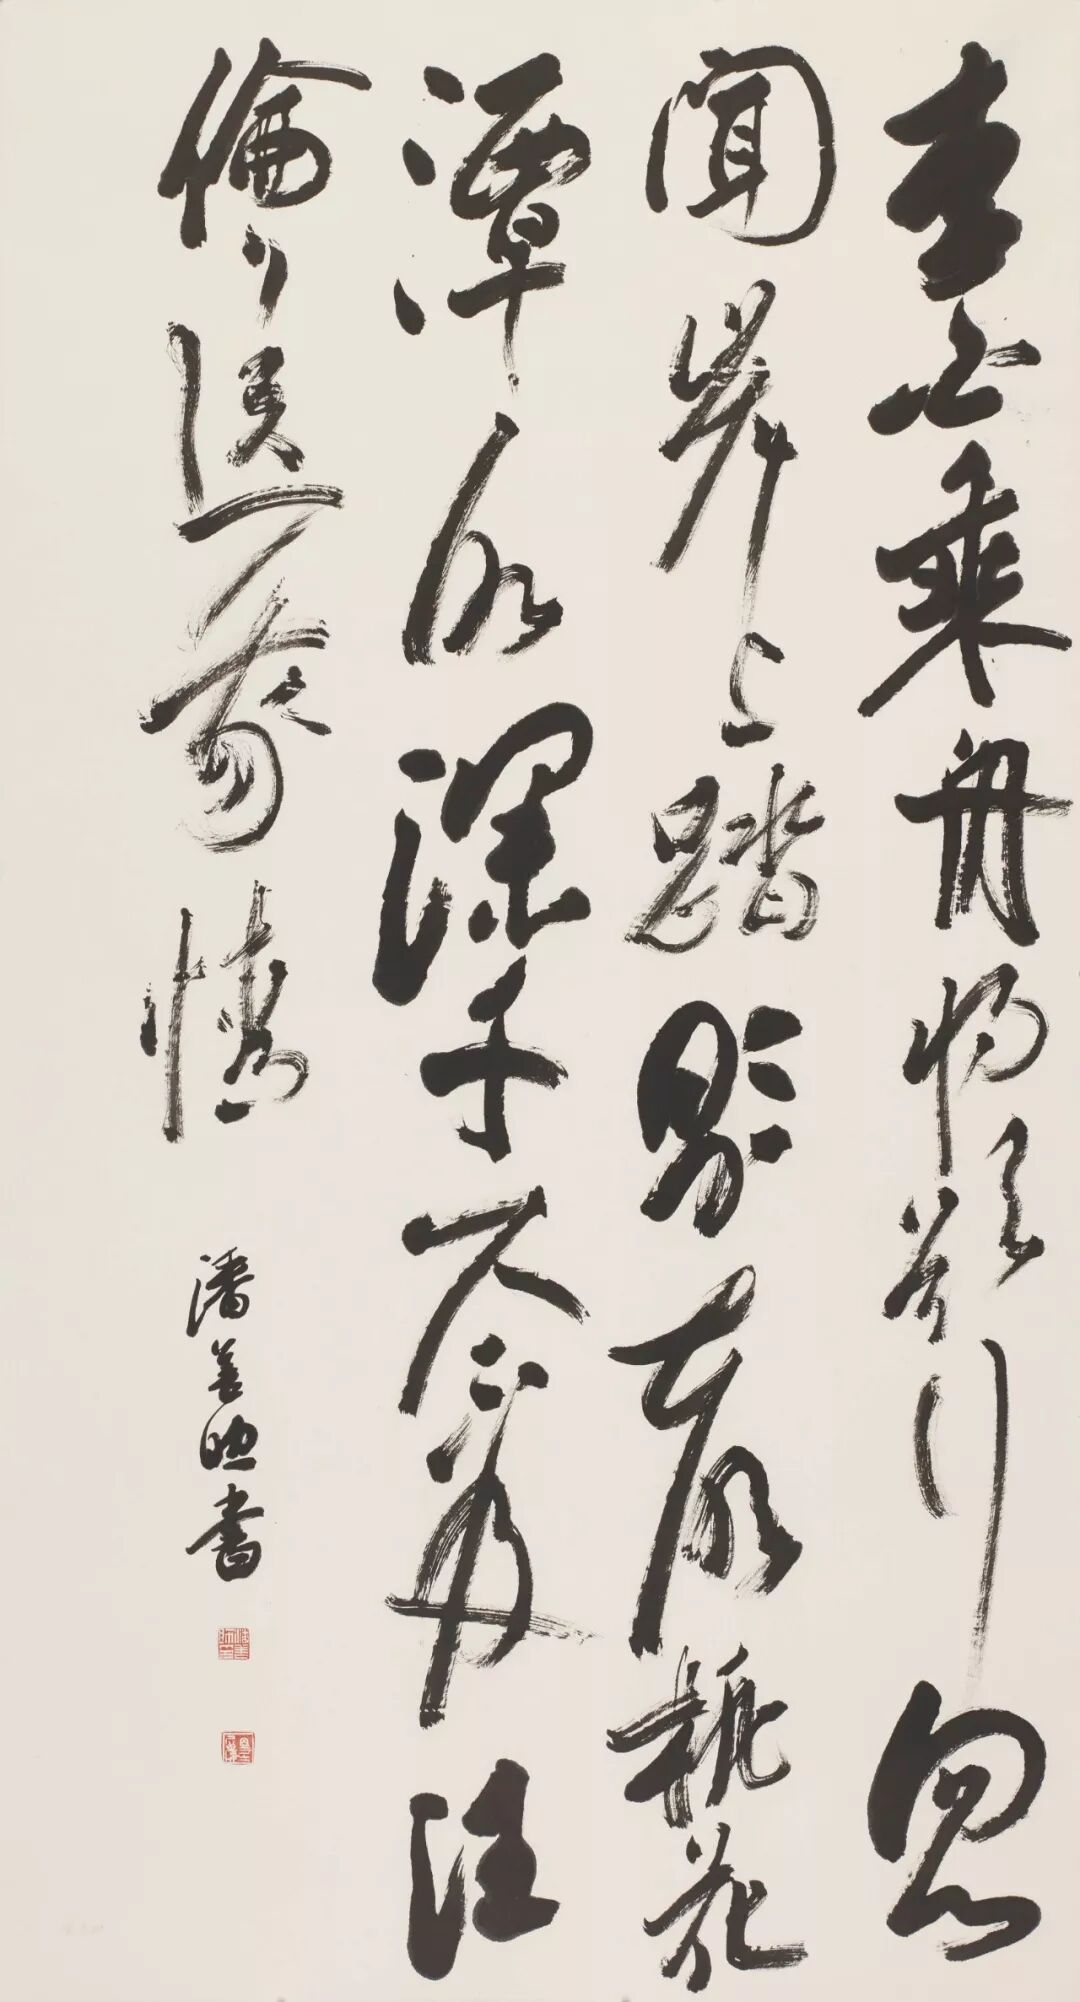 李白乘舟將欲行忽
聞岸上踏歌聲桃花
潭水深千尺不及汪
倫送我情
潘善助書